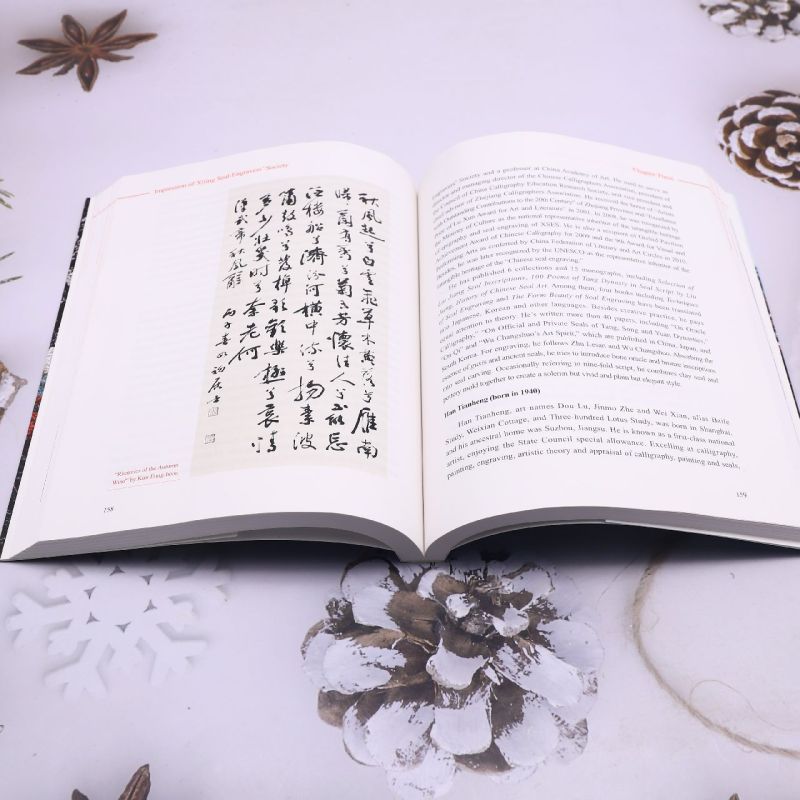 Impression of Xiling Seal-Engravers' Society
秋風起兮白雲飛草木黄落兮雁南
歸蘭有秀兮菊有芳懷佳人兮不能忘
泛樓船兮濟汾河橫中流兮揚素波
簫鼓鳴兮發棹歌歡樂極兮哀情
多少壯幾時兮奈老何
漢武帝秋風辭 丙子春
"Rhetorics of the Autumn
Wind" by Kan Fong-hsou
158
Chapter Three
Engravers' Society and a professor at China Academy of Art. He used to serve as
managing director of the Chinese Calligraphers Association,
of China Calligraphy Education Research Institute, vice president and
of Zhejiang Calligraphers Association. He received the honor of "Artists
with Outstanding Contributions to the 20th Century" of Zhejiang Province and
"Lu Xun Award for Art and Literature" in 2001. In 2009, he was recognized by
Ministry of Culture as the national representative inheritor of the intangible heritage
of epigraphy and seal engraving of XSES. He is also a recipient of Orchid Pavilion
Achievement Award of Chinese Calligraphy for 2009 and the 9th Award for Visual and
Performing Arts as conferred by China Federation of Literary and Art Circles in 2010.
Besides, he was later recognized by the UNESCO as the representative inheritor of the
intangible heritage of the "Chinese seal engraving."
He has published 6 collections and 15 monographs, including Selection of
Liu Jiang Seal Inscriptions, 100 Poems of Tang Dynasty in Seal Script by Liu
Jiang, History of Chinese Seal Art. Among them, four books including Techniques
of Seal Engraving and The Form Beauty of Seal Engraving have been translated
into Japanese, Korean and other languages. Besides creative practice, he pays
great attention to theory. He's written more than 40 papers, including "On Oracle
Calligraphy," "On Official and Private Seals of Tang, Song and Yuan Dynasties,"
"On Qi" and "Wu Changshuo's Art Spirit," which are published in China, Japan, and
South Korea. For engraving, he follows Zhu Lesan and Wu Changshuo. Absorbing the
essence of guxis and ancient seals, he tries to introduce bone oracle and bronze inscriptions
into seal carving. Occasionally referring to nine-fold script, he combines clay seal and
pottery mold together to create a solemn but vivid and plain but elegant style.
Han Tianheng (born in 1940)
Han Tianheng, art names Dou Lu, Jinmo Zhe and Wei Xian, alias Beife
Study, Weixian Cottage, and Three-hundred Lotus Study, was born in Shanghai,
and his ancestral home was Suzhou, Jiangsu. He is known as a first-class national
artist, enjoying the State Council special allowance. Excelling at calligraphy,
painting, engraving, artistic theory and appraisal of calligraphy, painting and seals,
159